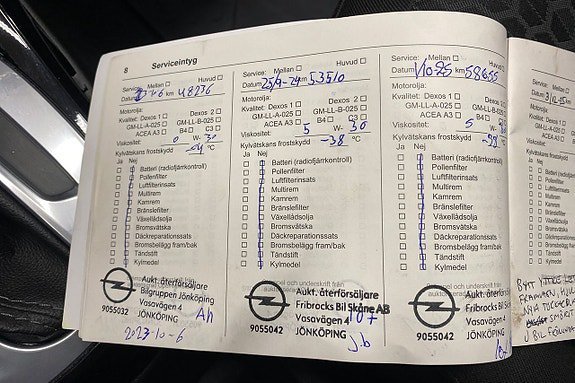 8 Serviceintyg
Service: Mellan Huvud
Datum km 48236
Motorolja:
Kvalitet: Dexos 1 Dexos 2
GM-LL-A-025 GM-LL-B-025
ACEA A3 B4 C3
Viskositet: 0 W- 30
Kylvätskans frostskydd °C
Ja Nej
Batteri (radiofjärrkontroll)
Pollenfilter
Luftfilterinsats
Multirem
Kamrem
Bränslefilter
Växellådsolja
Bromsvätska
Däckreparationssats
Bromsbelägg fram/bak
Tändstift
Kylmedel
Aukt. återförsäljare
Bilgruppen Jönköping
Vasavägen 4
9055032 JÖNKÖPING
2023-10-6
Service: Mellan Huvud
Datum 25/9-24 km 53510
Motorolja:
Kvalitet: Dexos 1 Dexos 2
GM-LL-A-025 GM-LL-B-025
ACEA A3 B4 C3
Viskositet: 5 W- 30
Kylvätskans frostskydd -38 °C
Ja Nej
Batteri (radiofjärrkontroll)
Pollenfilter
Luftfilterinsats
Multirem
Kamrem
Bränslefilter
Växellådsolja
Bromsvätska
Däckreparationssats
Bromsbelägg fram/bak
Tändstift
Kylmedel
Aukt. återförsäljare
Fribrocks Bil Skåne AB
Vasavägen 4
9055042 JÖNKÖPING
Service: Mellan Huvud
Datum km 58655
Motorolja:
Kvalitet: Dexos 1 Dexos 2
GM-LL-A-025 GM-LL-B-025
ACEA A3 B4 C3
Viskositet: 5 W-
Kylvätskans frostskydd °C
Ja Nej
Batteri (radiofjärrkontroll)
Pollenfilter
Luftfilterinsats
Multirem
Kamrem
Bränslefilter
Växellådsolja
Bromsvätska
Däckreparationssats
Bromsbelägg fram/bak
Tändstift
Kylmedel
Aukt. återförsäljare
Fribrocks Bil
Vasavägen 4
9055042 JÖNKÖPING